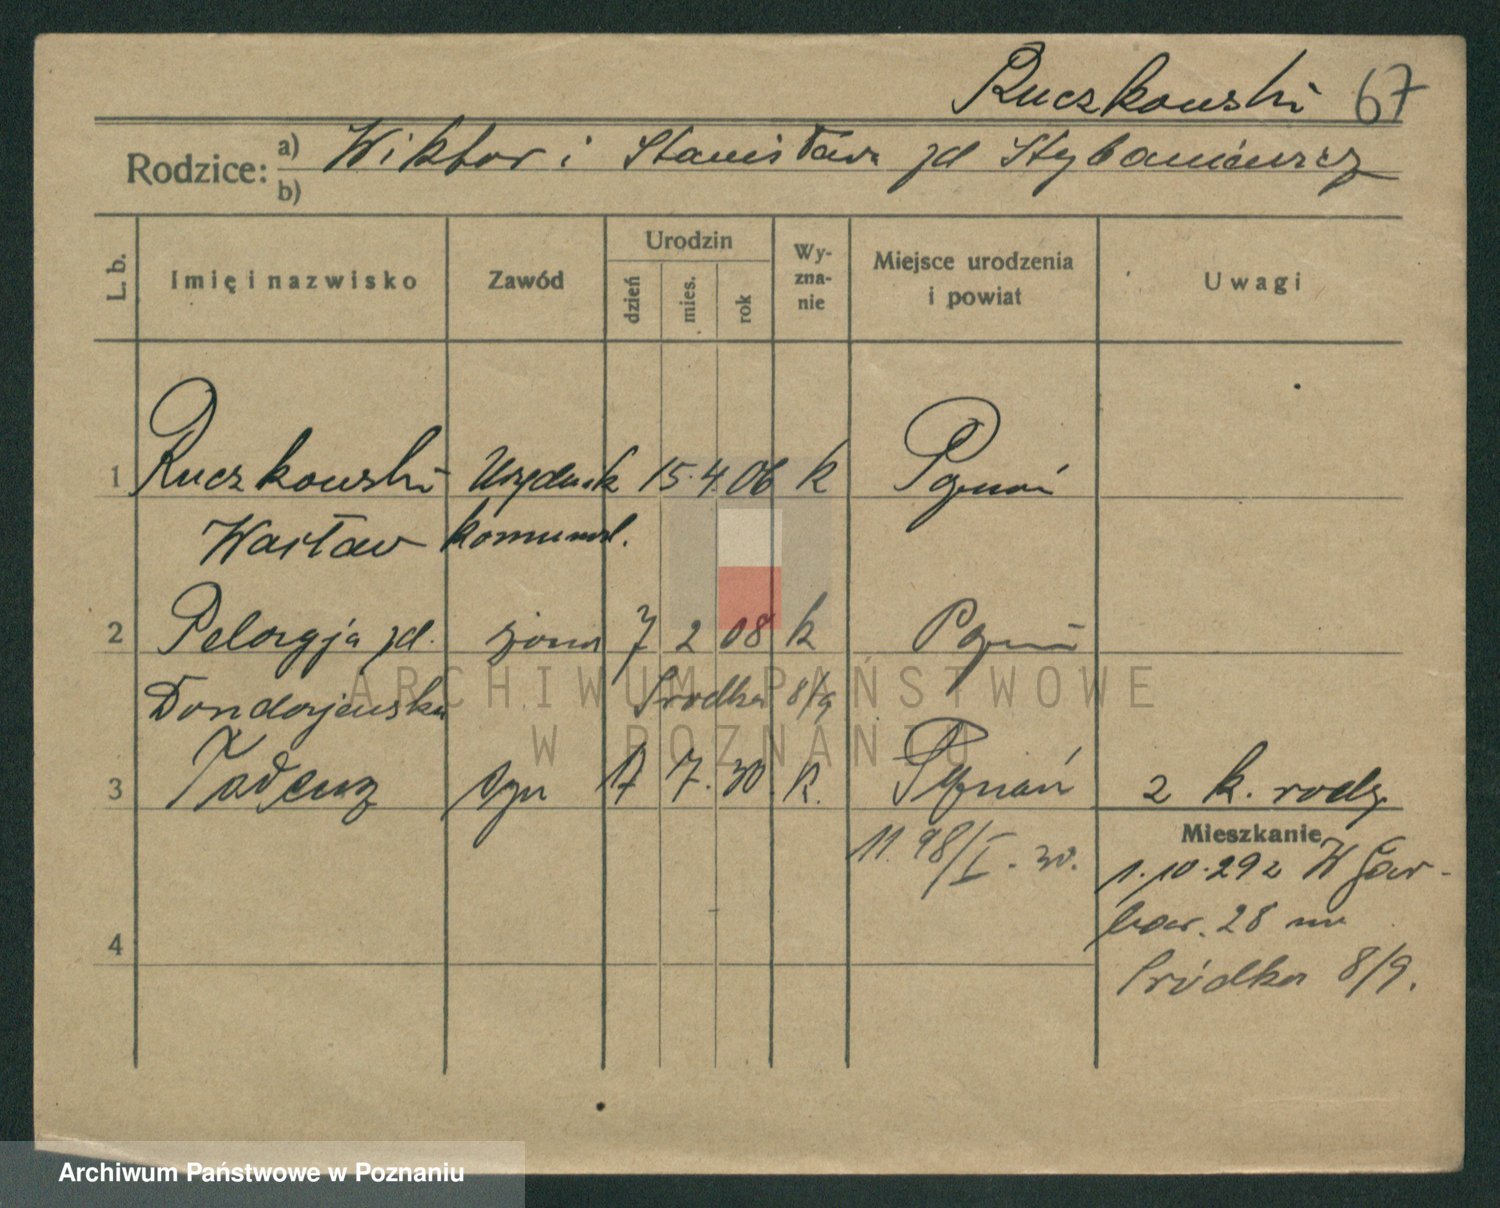 Ruczkowski 67
Rodzice: a) Wiktor i Stanisława zd Stybaniewicz
b)
L. b. Imię i nazwisko Zawód Urodzin dzień mies. rok Wyznanie Miejsce urodzenia i powiat Uwagi
1 Ruczkowski Urzędnik 15. 4. 06 k Poznań
Wacław komunal.
2 Pelagja zd. żona 7 2 08 k Poznań
Środka 8/9
3 Tadeusz syn 7. 30. k. Poznań 2 k. rodz.
Mieszkanie
11. 98/I. 30. 1. 10. 29 z W Gar-
bar. 28 na
4 Śródka 8/9.
ARCHIWUM PAŃSTWOWE
W POZNANIU
Archiwum Państwowe w Poznaniu